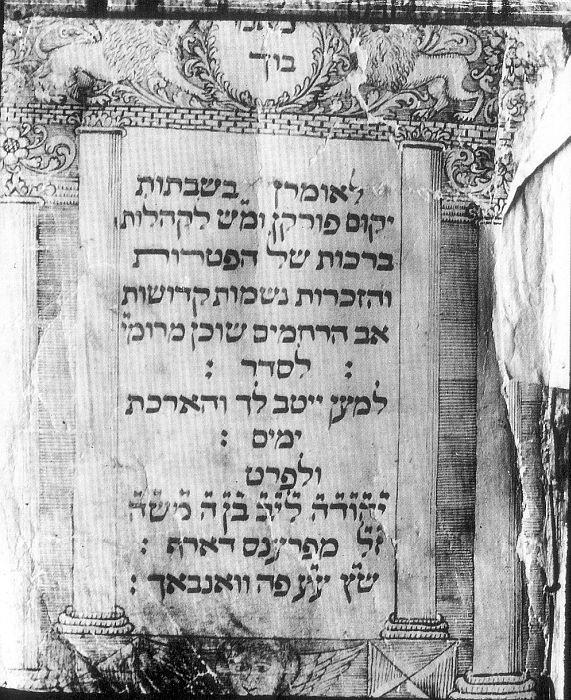 בוך
לאומרן בשבתות
יקום פורקן ומ״ש לקהלות
ברכות של הפטרות
והזכרות נשמות קדושות
אב הרחמים שוכן מרומי׳
: לסדר :
למען ייטב לך והארכת
ימים :
ולפרט
יהודה ליב בן ה משה
ז״ל מפרענס דארף :
ש״ץ ע״ע פה וואנבאך :